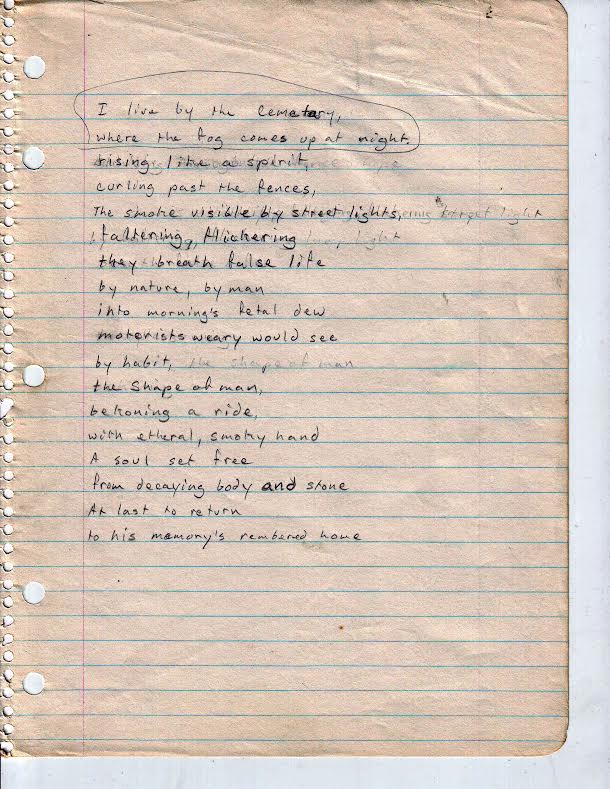 I live by the cemetary,
where the fog comes up at night.
rising like a spirit,
curling past the fences,
The smoke visible by street lights,
faltering, flickering
they breath false life
by nature, by man
into morning's fetal dew
moterists weary would see
by habit, the shape of man
the shape of man,
bekoning a ride,
with etheral, smoky hand
A soul set free
from decaying body and stone
At last to return
to his memory's rembered home